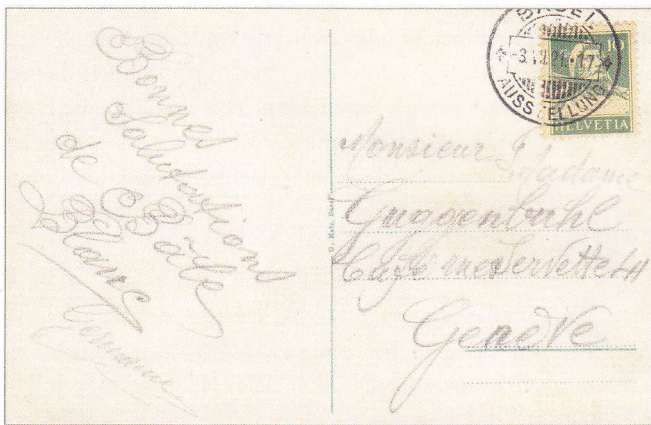 Bonnes
Salutations
de Bâle
Blanc
Germaine
BASEL
AUSSTELLUNG
10
HELVETIA
Monsieur Madame
Guggenbuhl
Café rue Servette 44
Genève